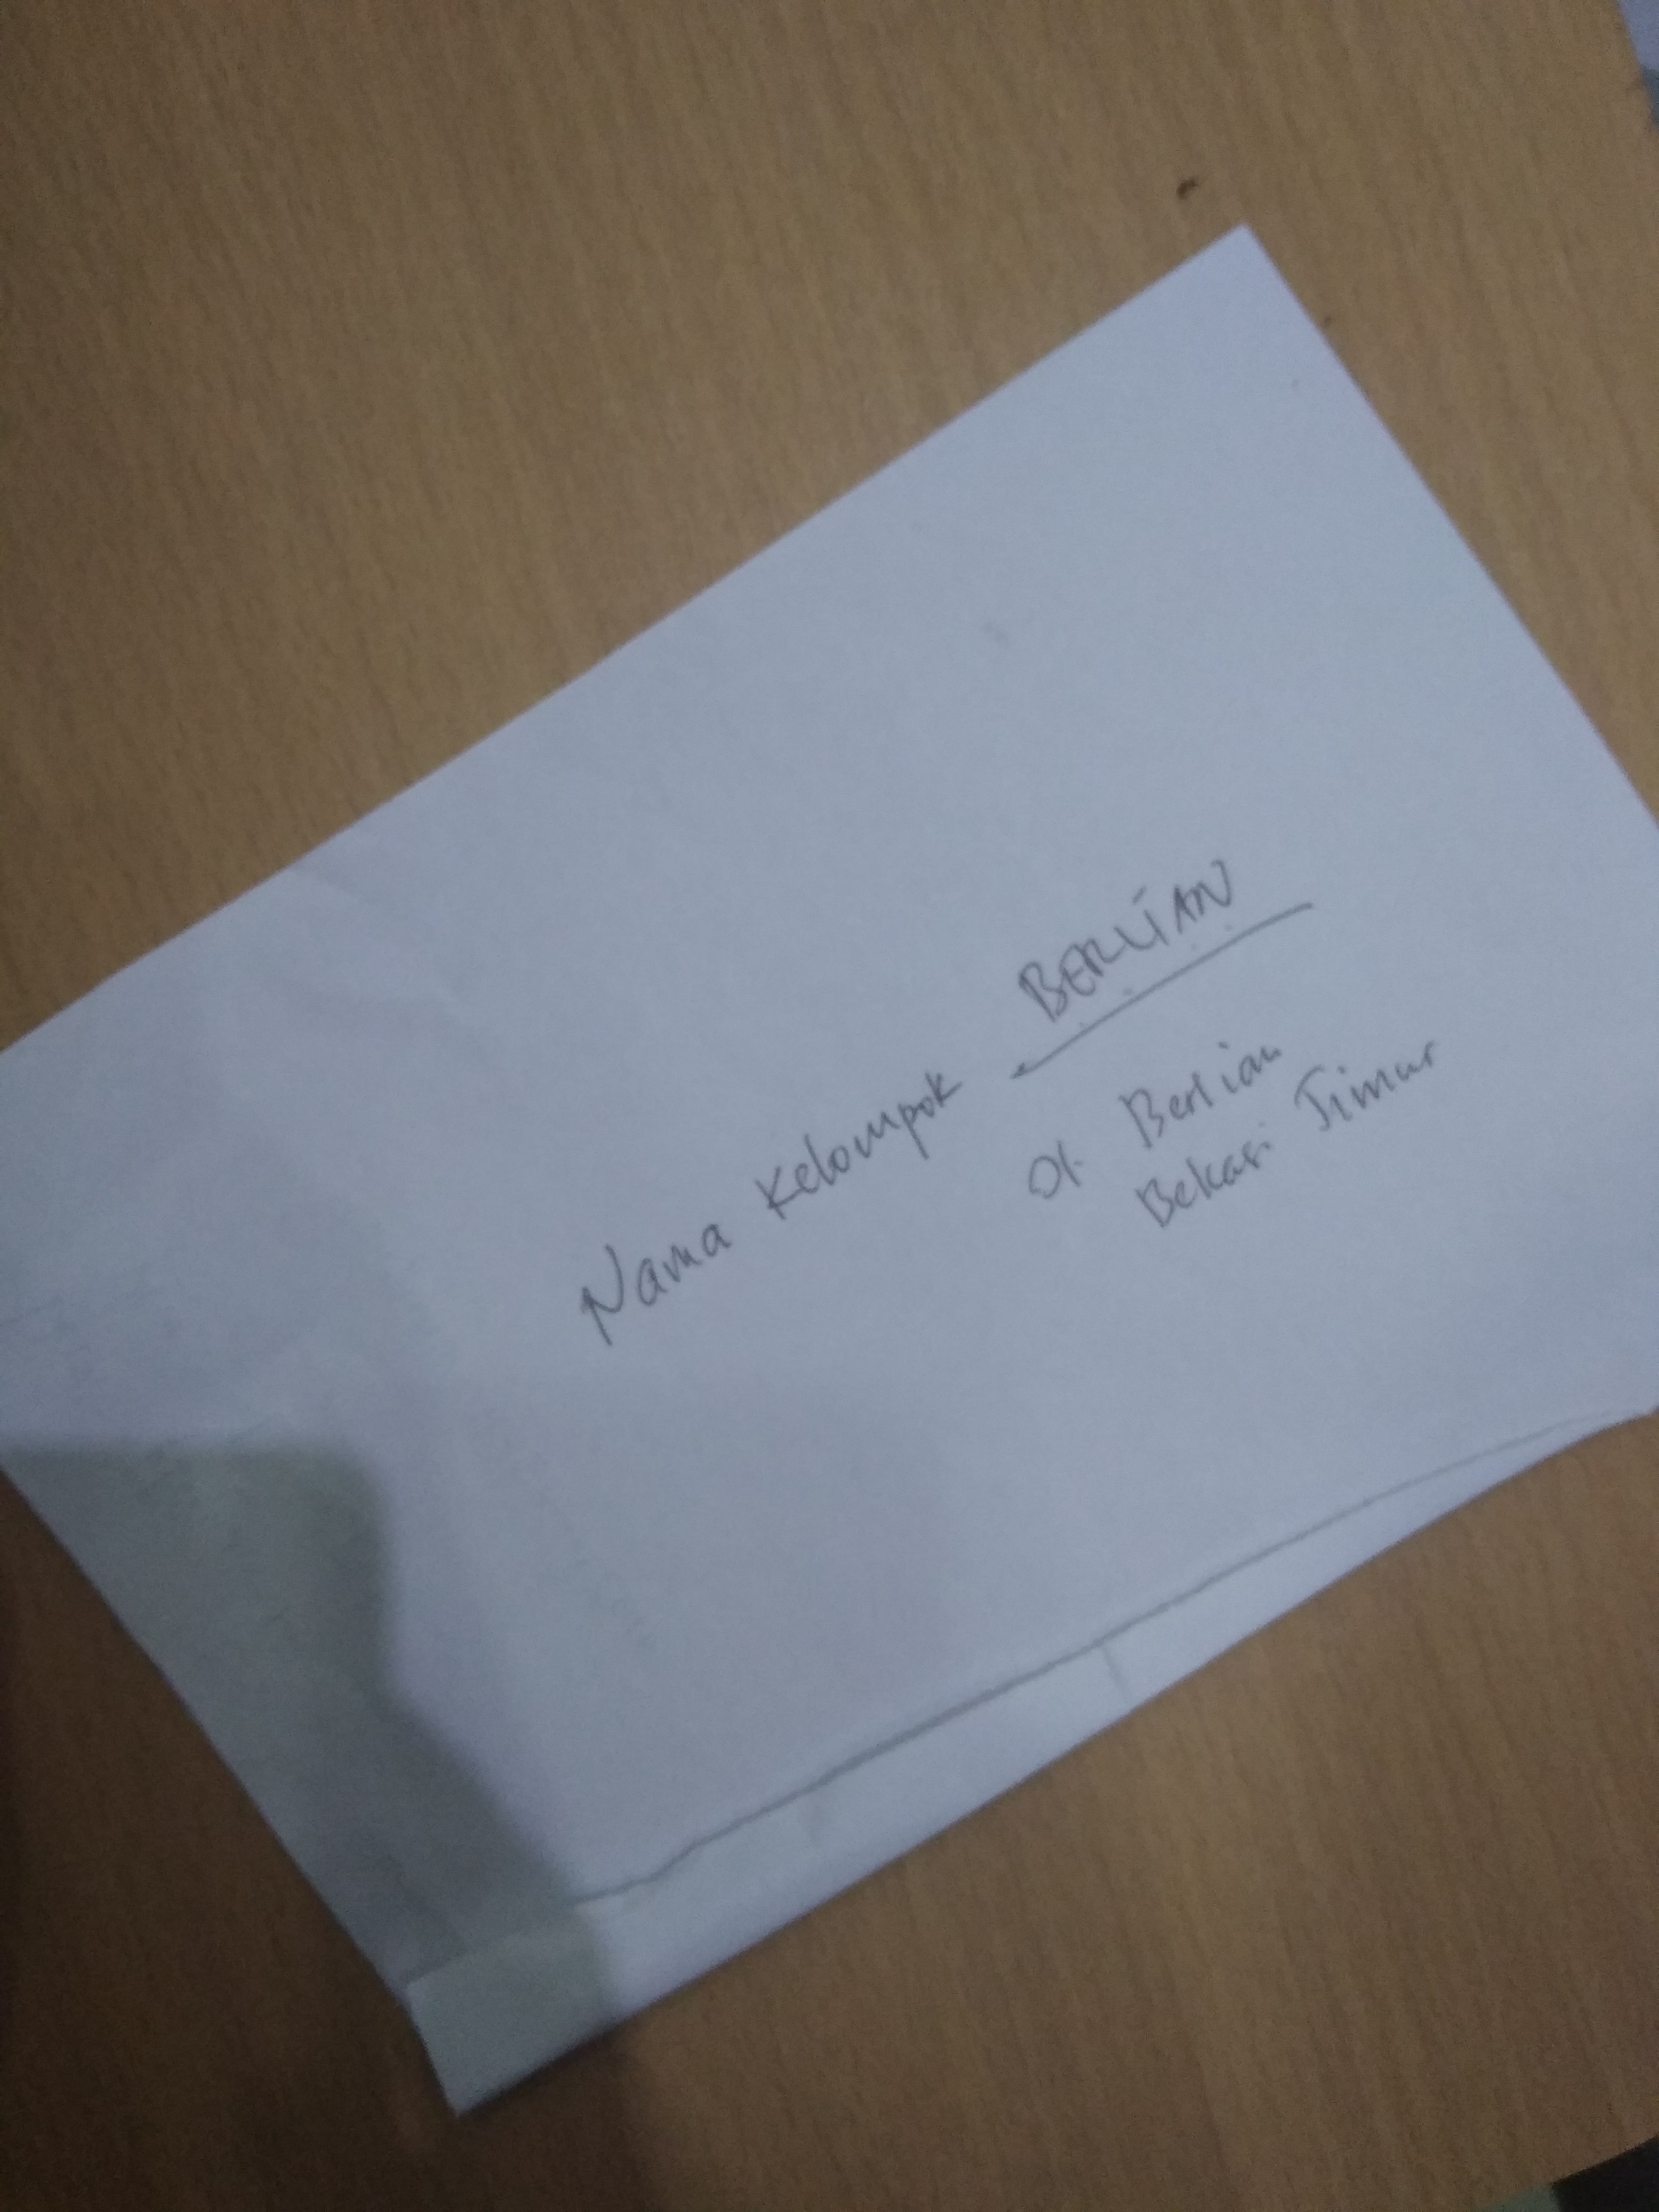 Nama Kelompok BERLIAN
Jl. Berlian
Bekasi Timur